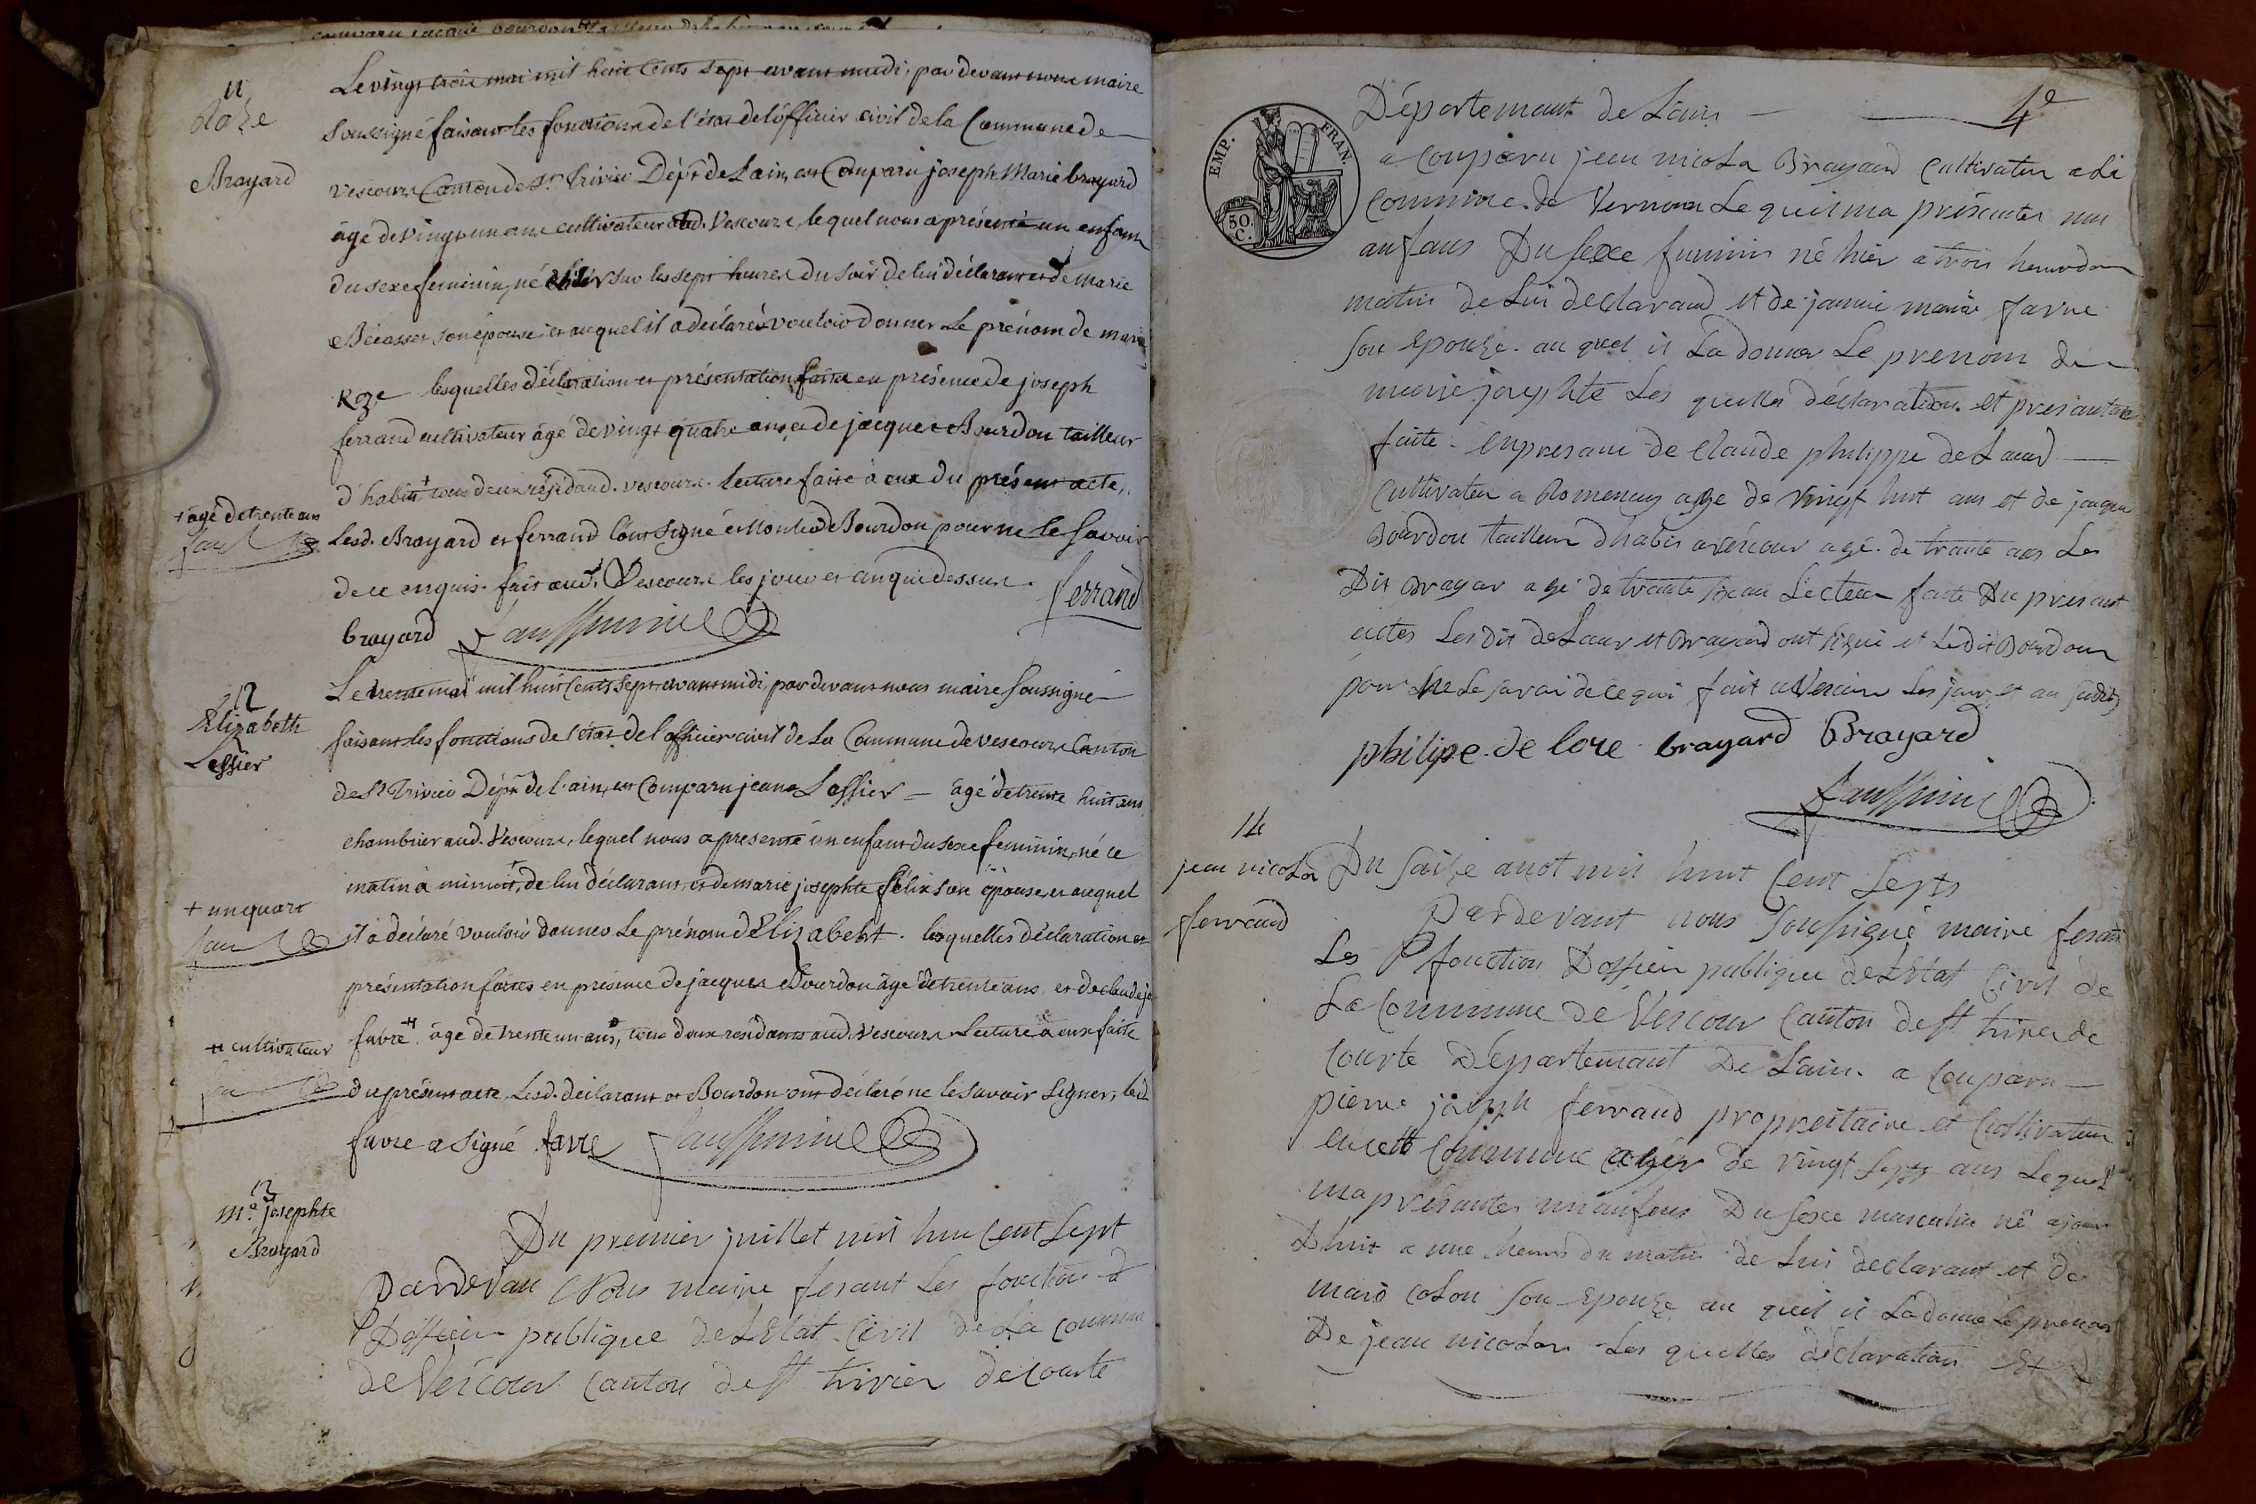 11
Roze
Brayard
Le vingt trois mai mil huit cents sept avant midi, par devant nous maire
soussigné faisant les fonctions de l'état de l'officier civil de la Commune de
vescours Canton de St. Trivier Dépt. de Lain, est Comparu joseph Marie brayard
âgé de vingt un ans cultivateur aud. Vescours, lequel nous a présenté un enfant
du sexe feminin, né hier sur les sept heures du soir de lui déclarant et de marie
Bécasset son épouse, et auquel il a déclaré vouloir donner Le prénom de marie
Roze lesquelles déclaration et présentation faites en présence de joseph
ferrand cultivateur âgé de vingt quatre ans, et de jacques Bourdon tailleur
d'habit + tous deux résidt aud. vescours. lecture faite à eux du présent acte,
+ âgé de trente ans
Lesd. Brayard et ferrand l'ont signé et non led Bourdon pour ne le savoir
de ce enquis. fait aud. Vescours les jour et an que dessus.
ferrand
brayard
12
Elizabeth
Lassier
Le trente mai mil huit Cents sept avant midi, par devant nous maire soussigné
faisant les fonctions de l'état de l'officier civil de La Commune de vescours Canton
de St Trivier Dépt. de l'ain, est Comparu jean Lassier âgé de trente huit ans
chambrier aud. Vescours, lequel nous a presenté un enfant du sexe feminin, né ce
matin à minuit +, de lui déclarant, et de marie josephte félix son épouse, et auquel
+ un quart
il a déclaré vouloir donner Le prénom d'Elizabeht. lesquelles déclaration et
présentation faites en présence de jacques Bourdon âgé de trente ans et de claude
favre ++ âgé de trente un ans, tous deux residants aud. Vescours Lecture à eux faite
++ cultivateur
du présent acte, Lesd. déclarant et Bourdon ont déclaré ne le savoir signer, led.
favre a signé. favre
M.e josephte
Brayard
Du premier juillet mil hui cent sept
Pardevan Nous maire fesant Les fonction
D'offisier publique de L'Etat Civil de La commune
de Vescour canton de St trivier de courte
Département de Lain
4e
EMP. FRAN.
50. C.
a Comparu jean nicola Brayard Cultivateur a la
Commune de Vernoux Le quel ma présenter un
anfans Du sexe feminin né hier a trois heure du
matin de Lui declarand et de jannie marie favre
son Epouze. au quel il La donner Le prenom de
marie josephte Les quelle déclaration et presantation
faite. en presanse de Claude philippe de Laur
Cultivateur a Romenay agé de vingt huit ans et de jaque
Bourdon tailleur dhabis a vescour agé de trante ans Les
Dit Brayar agé de trante ans Lecteur faite Du presant
actes Les Dit de Laur et Brayard ont signé et Le dit Bourdon
pour ne Le savoir de ce qui fait a Vescour Les jour et an susdits
philipe de lore brayard Brayard
14
jean nicola
ferrand
Du saize auot mil huit Cent Septs
Pardevant nous soussigné maire fesant
Les fonction Doffisier publique de L'Etat Civil de
La Commune de Vescour Canton de St trivier de
Courte Departemant De Lain. a Comparu
pierre joseph ferrand propreitaire et Cultivateur
en cette Commune agér de vingt septs ans Lequel
ma présanter un anfans Du sexe masculin né ajour
Dhuit a une heure du matin de Lui declarant et de
mari colon son Epouze au quel il La donné Le prenom
De jean nicolas Les quelles déclaration Et